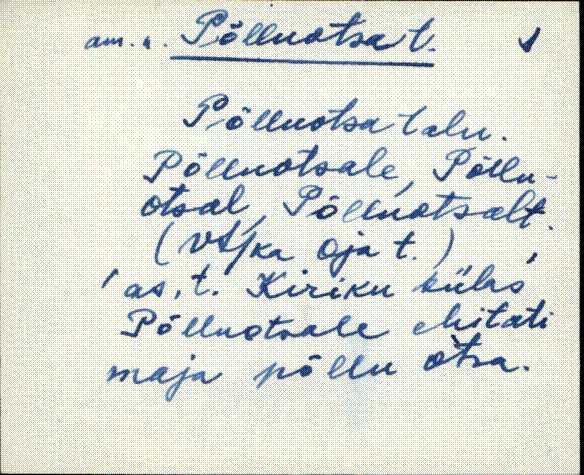 am. n. Põlluotsa t.
Põlluotsa talu.
Põlluotsale, Põllu-
otsal, Põlluotsalt.
(vt/ka Oja t.)
as. t. Kiriku külas
Põlluotsale ehitati
maja põllu otsa.